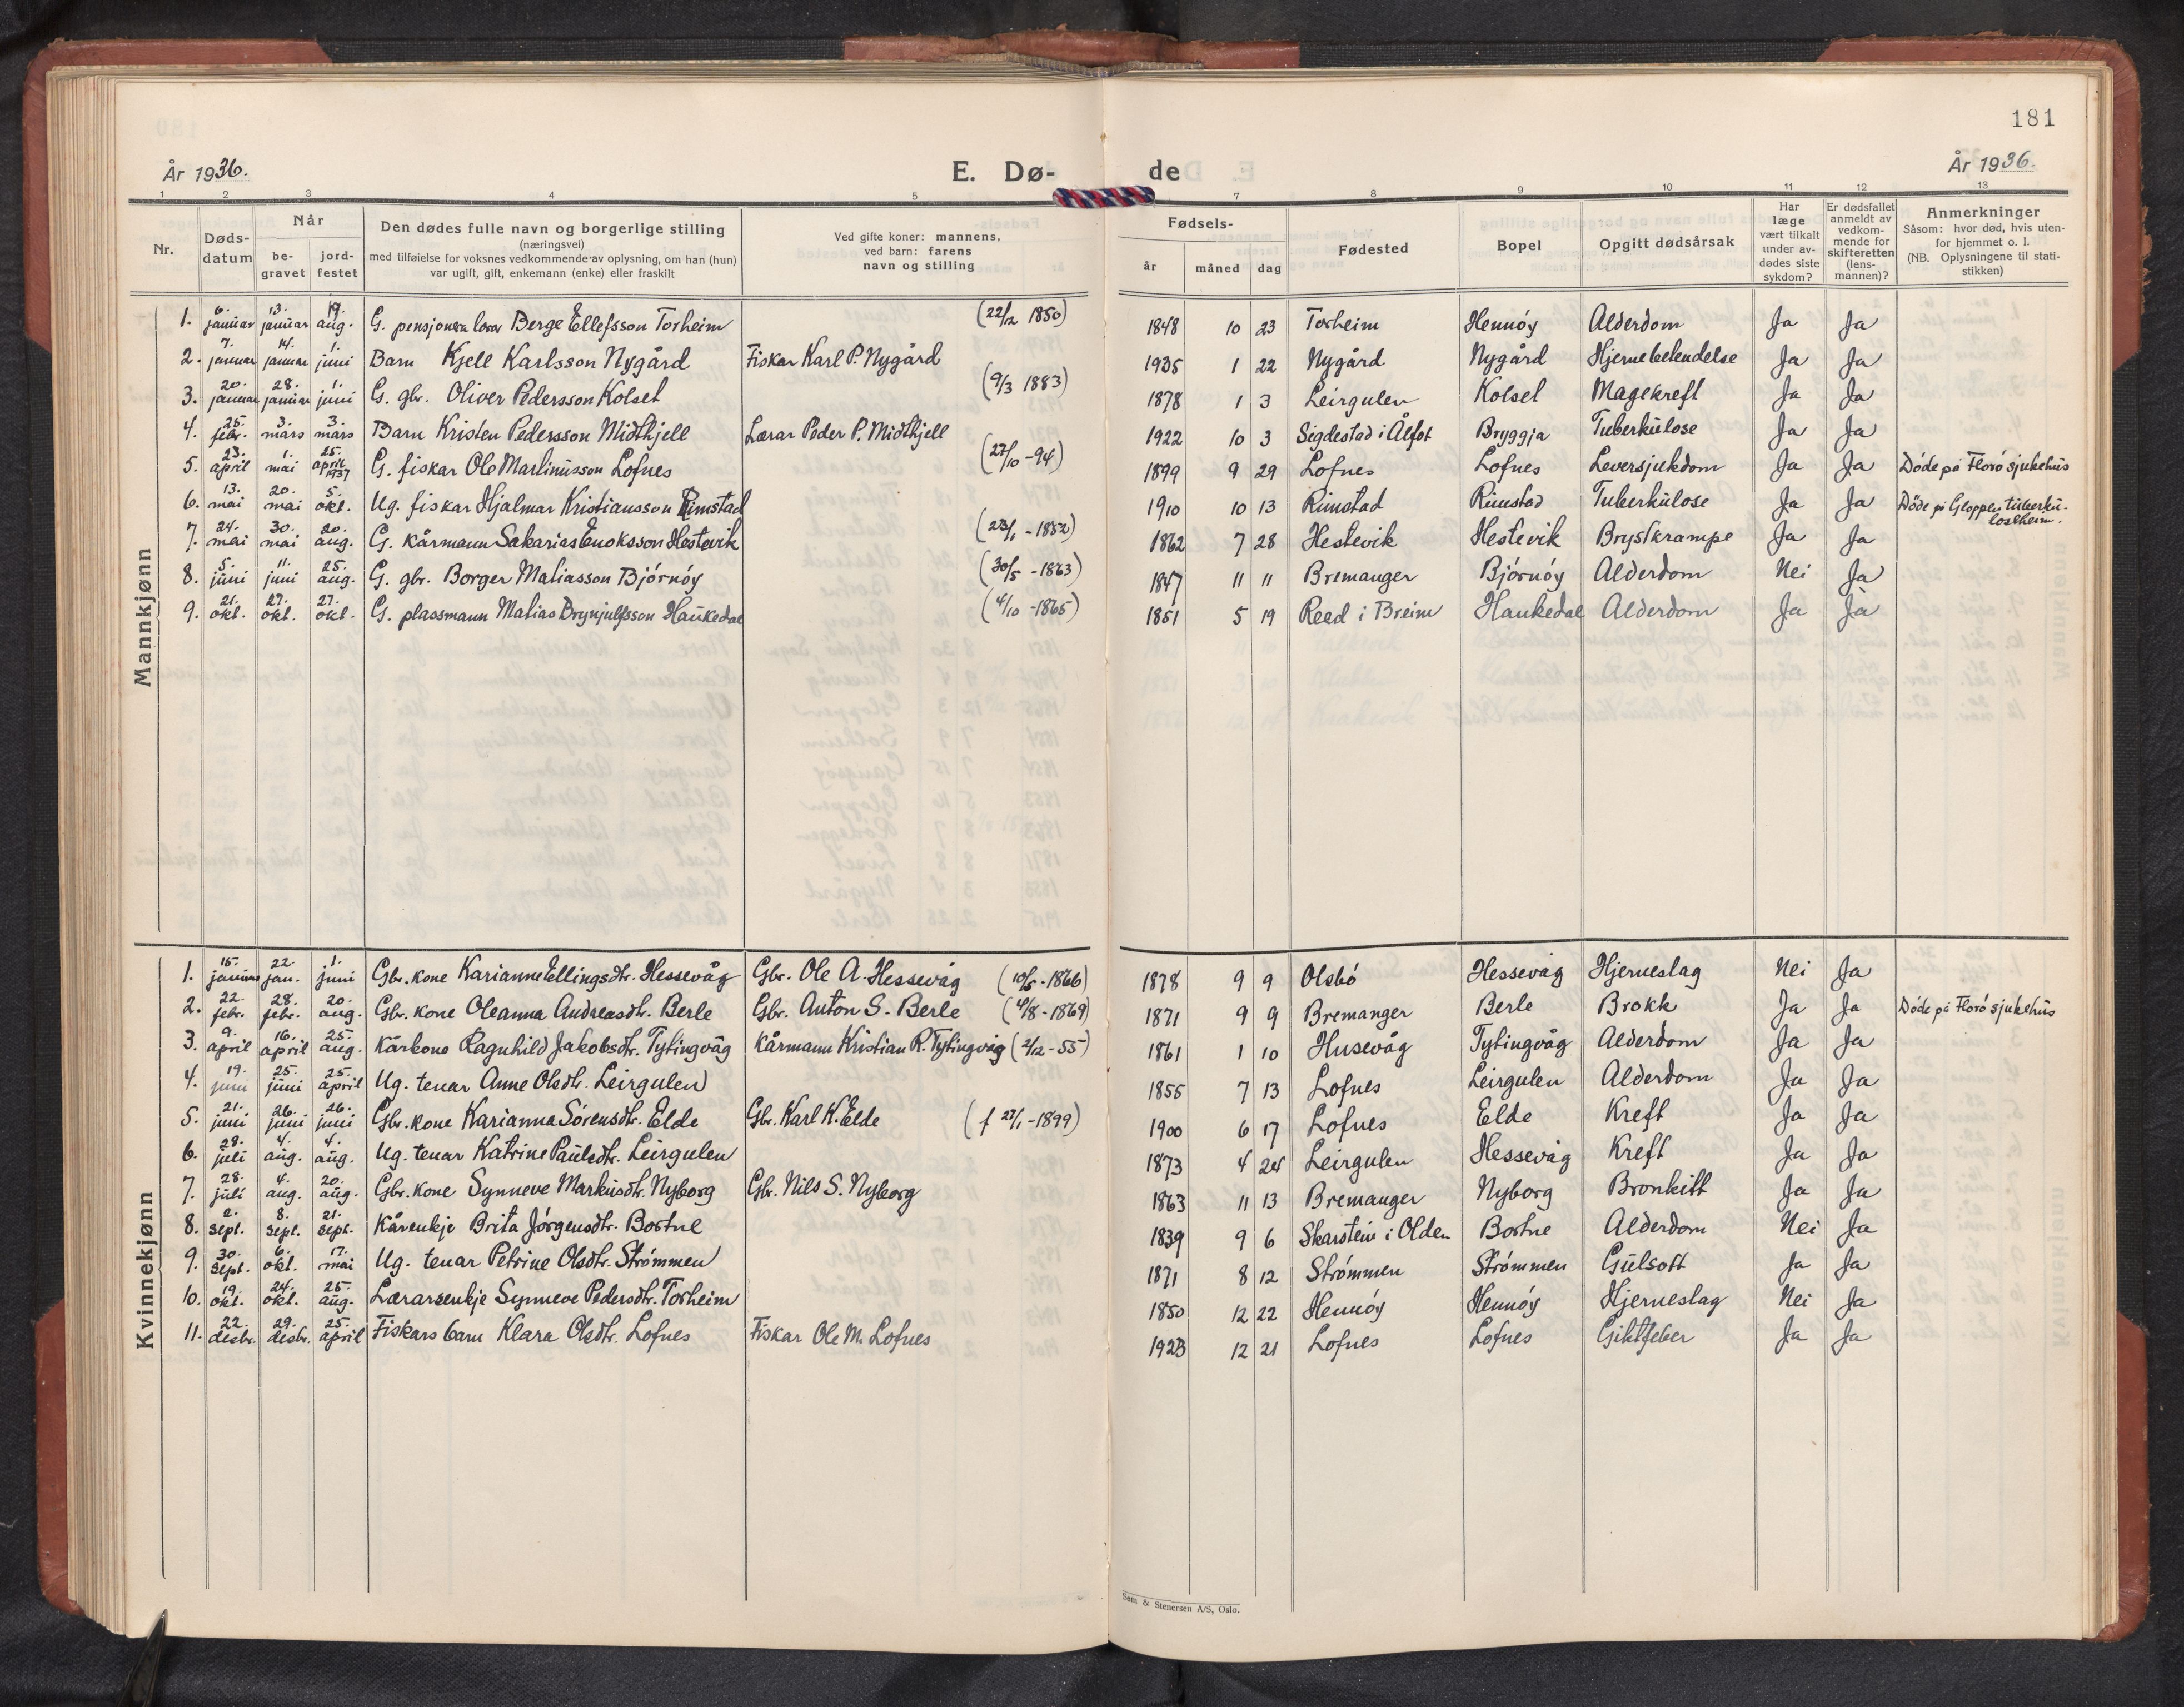 181
År 1936. E. Dø- de År 1936.
1 2 3 4 5 7 8 9 10 11 12 13
Nr. Døds-datum Når be-gravet jord-festet Den dødes fulle navn og borgerlige stilling (næringsvei) med tilføielse for voksnes vedkommende av oplysning, om han (hun) var ugift, gift, enkemann (enke) eller fraskilt Ved gifte koner: mannens, ved barn: farens navn og stilling Fødsels- år måned dag Fødested Bopel Opgitt dødsårsak Har læge vært tilkalt under av-dødes siste sykdom? Er dødsfallet anmeldt av vedkom-mende for skifteretten (lens-mannen)? Anmerkninger Såsom: hvor død, hvis uten-for hjemmet o. l. (NB. Oplysningene til stati-stikken)
Mannkjønn
1. 6. januar 13. januar 19. aug. G. pensjonera lærar Berge Ellefsson Torheim (22/12 1850) 1848 10 23 Torheim Hennóy Alderdom Ja Ja
2. 7. januar 14. januar 1. juni Barn Kjell Karlsson Nygård Fiskar Karl P. Nygård 1935 1 22 Nygård Nygård Hjernebetendelse Ja Ja
3. 20. januar 28. januar 1. juni G. gbr. Oliver Pedersson Kolset (9/3 1883) 1878 1 3 Leirgulen Kolset Magekreft Ja Ja
4. 25. febr. 3. mars 3. mars Barn Kristen Pedersson Midthjell Lærar Peder P. Midthjell 1922 10 3 Sigdestad i Ålfot Bryggja Tuberkulose Ja Ja
5. 23. april 1. mai 25. april 1937 G. fiskar Ole Martinusson Lofnes (27/10 -94) 1899 9 29 Lofnes Lofnes Leversjukdom Ja Ja Døde på Florö sjukehus
6. 13. mai 20. mai 5. okt. Ug. fiskar Hjalmar Kristiansson Rimstad 1910 10 13 Rimstad Rimstad Tuberkulose Ja Ja Døde på Gloppen tuberku-loseheim.
7. 24. mai 30. mai 20. aug. G. kårmann Sakarias Enoksson Hestevik (23/1 -1852) 1862 7 28 Hestevik Hestevik Brystkrampe Ja Ja
8. 5. juni 11. juni 25. aug. G. gbr. Borger Matiasson Bjórnóy (30/5 -1863) 1847 11 11 Bremanger Bjórnóy Alderdom Nei Ja
9. 21. okt. 27. okt. 27. okt. G. plassmann Matias Brynjulfsson Haukedal (4/10 -1865) 1851 5 19 Reed i Breim Haukedal Alderdom Ja Ja
Kvinnekjønn
1. 15. januar 22. jan. 1. juni Gbr. kone Karianne Ellingsdtr. Hessevåg Gbr. Ole A. Hessevåg (10/5 -1866) 1878 9 9 Olsbó Hessevåg Hjerneslag Nei Ja
2. 22. febr. 28. febr. 20. aug. Gbr. kone Oleanna Andreasdtr. Berle Gbr. Anton S. Berle (4/8 -1869) 1871 9 9 Bremanger Berle Brokk Ja Ja Døde på Florö sjukehus
3. 9. april 16. april 25. aug. Kårkone Ragnhild Jakobsdtr. Tytingvåg Kårmann Kristian R. Tytingvåg (2/12 -55) 1861 1 10 Husevåg Tytingvåg Alderdom Ja Ja
4. 19. juni 25. juni 25. april Ug. tenar Anne Olsdtr. Leirgulen 1855 7 13 Lofnes Leirgulen Alderdom Ja Ja
5. 21. juni 26. juni 26. juni Gbr. kone Karianna Sórensdtr. Elde Gbr. Karl K. Elde (f 27/1 -1899) 1900 6 17 Lofnes Elde Kreft Ja Ja
6. 28. juli 4. aug. 4. aug. Ug. tenar Katrine Paulsdtr. Leirgulen 1873 4 24 Leirgulen Hessevåg Kreft Ja Ja
7. 28. juli 4. aug. 20. aug. Gbr. kone Synneve Markusdtr. Nyborg Gbr. Nils S. Nyborg 1863 11 13 Bremanger Nyborg Bronkitt Ja Ja
8. 2. sept. 8. sept. 21. sept. Kårenkje Brita Jórgensdtr. Bortne 1839 9 6 Skarstein i Olden Bortne Alderdom Nei Ja
9. 30. sept. 6. okt. 17. mai Ug. tenar Petrine Olsdtr. Strómmen 1871 8 12 Strómmen Strómmen Gulsott Ja Ja
10. 19. okt. 24. okt. 25. aug. Lærarsenkje Synneve Pedersdtr. Torheim 1850 12 22 Hennóy Hennóy Hjerneslag Nei Ja
11. 22. desbr. 29. desbr. 25. april Fiskars barn Klara Olsdtr. Lofnes Fiskar Ole M. Lofnes 1923 12 21 Lofnes Lofnes Giktfeber Ja Ja
Sem & Stenersen A/S, Oslo.